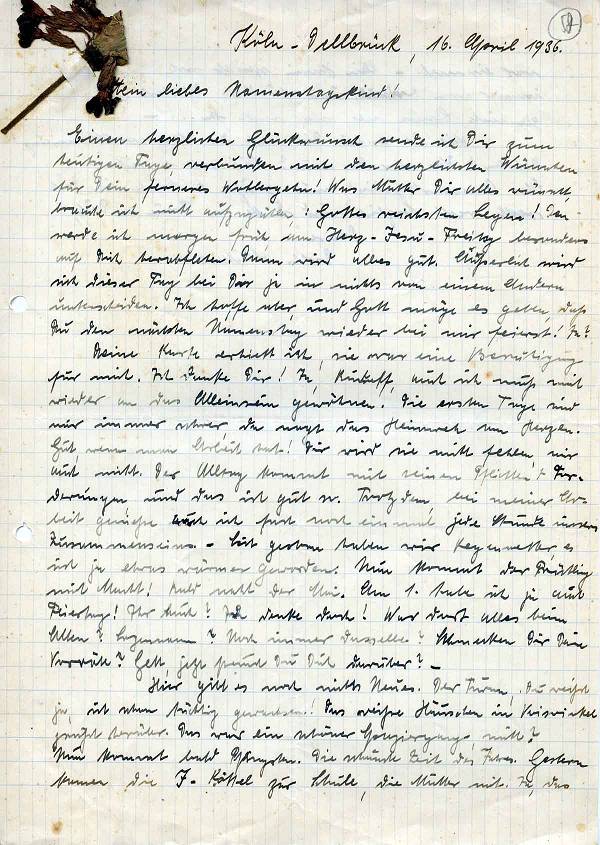 58
Köln-Dellbrück, 16. April 1936.
Mein liebes Namenstagskind!
Einen herzlichen Glückwunsch sende ich Dir zum
heutigen Tage, verbunden mit den herzlichsten Wünschen
für Dein ferneres Wohlergehen! Was Mutter Dir alles wünscht,
brauche ich nicht aufzuzählen: Gottes reichsten Segen! Den
werde ich morgen früh am Herz-Jesu-Freitag besonders
auf Dich herabflehen. Dann wird alles gut. Äußerlich wird
sich dieser Tag bei Dir ja in nichts von einem Andern
unterscheiden. Ich hoffe aber, und Gott möge es geben, daß
Du den nächsten Namenstag wieder bei mir feierst! Ja?
Deine Karte erhielt ich, sie war eine Beruhigung
für mich. Ich danke Dir! Ja, auch ich muß mich
wieder an das Alleinsein gewöhnen. Die ersten Tage sind
mir immer schwer da nagt das Heimweh am Herzen.
Gut wenn man Arbeit hat! Dir wird sie nicht fehlen mir
auch nicht. Der Alltag kommt mit seinen Pflichten + For-
derungen und das ist gut so. Trotzdem, bei meiner Ar-
beit genieße ich fast noch einmal jede Stunde unseres
Zusammenseins. - Seit gestern haben wir Regenwetter, es
ist ja etwas wärmer geworden. Nun kommt der Frühling
mit Macht! Bald naht der Mai. Am 1. habe ich ja auch
Feiertag! Ihr auch? Ich denke doch! War dort alles beim
Alten? Noch immer dasselbe? Schmecken Dir Deine
Vorräte? Gelt jetzt freust Du Dich darüber? -
Hier gibt es noch nichts Neues. Der Turm, Du weißt
ja, ist schon tüchtig gewachsen! Das weiße Häuschen in
darüber. Das war ein schöner Spaziergang nicht?
Nun kommt bald Pfingsten. Die schönste Zeit des Jahres. Gestern
kamen die I-Kössel zur Schule, die Mütter mit. Ja, das